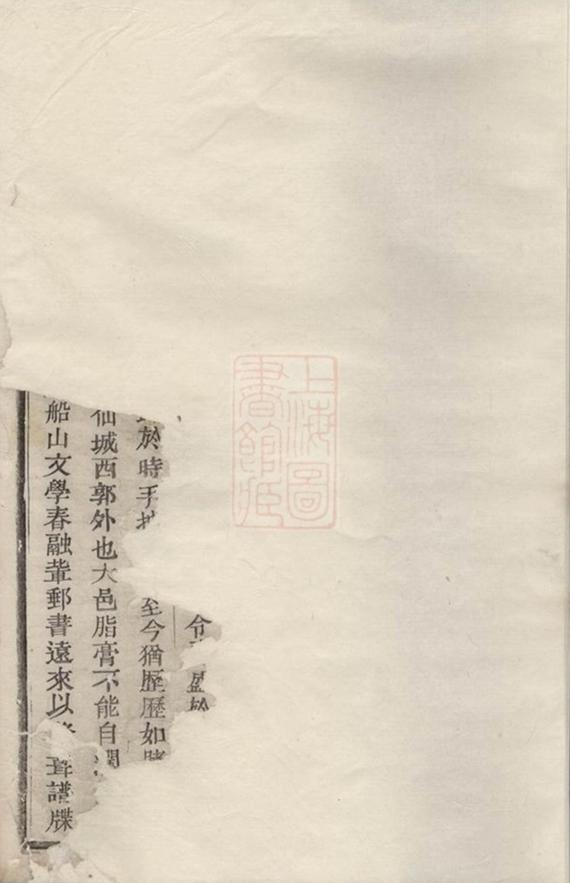 令
於時手 至今猶歷歷如
仙城西郭外也大邑脂膏不能自潤
船山文學春融輩郵書遠來以 譜牒
上海圖書館藏